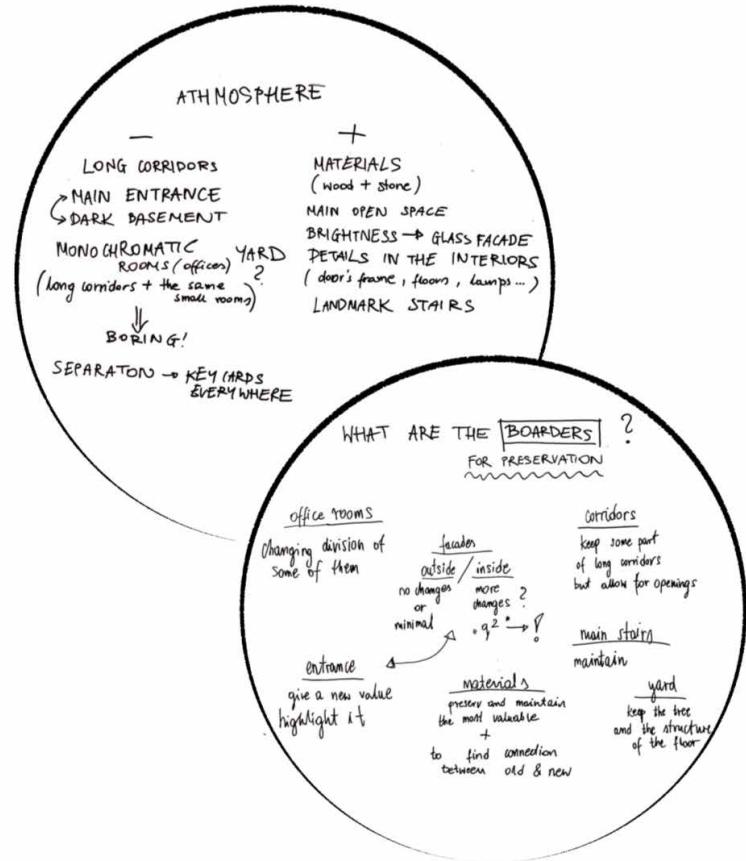 ATHMOSPHERE
−
LONG CORRIDORS
MAIN ENTRANCE
DARK BASEMENT
MONOCHROMATIC
ROOMS (offices)
(long corridors + the same
small rooms)
YARD
?
BORING!
SEPARATON → KEY CARDS
EVERYWHERE
+
MATERIALS
(wood + stone)
MAIN OPEN SPACE
BRIGHTNESS → GLASS FACADE
DETAILS IN THE INTERIORS
(door's frame, floors, lamps...)
LANDMARK STAIRS
WHAT ARE THE BOARDERS ?
FOR PRESERVATION
office rooms
changing division of
some of them
facades
outside / inside
no changes
or
minimal
more
changes ?
corridors
keep some part
of long corridors
but allow for openings
main stairs
maintain
entrance
give a new value
highlight it
materials
preserv and maintain
the most valuable
+
to find connection
between old & new
yard
keep the tree
and the structure
of the floor